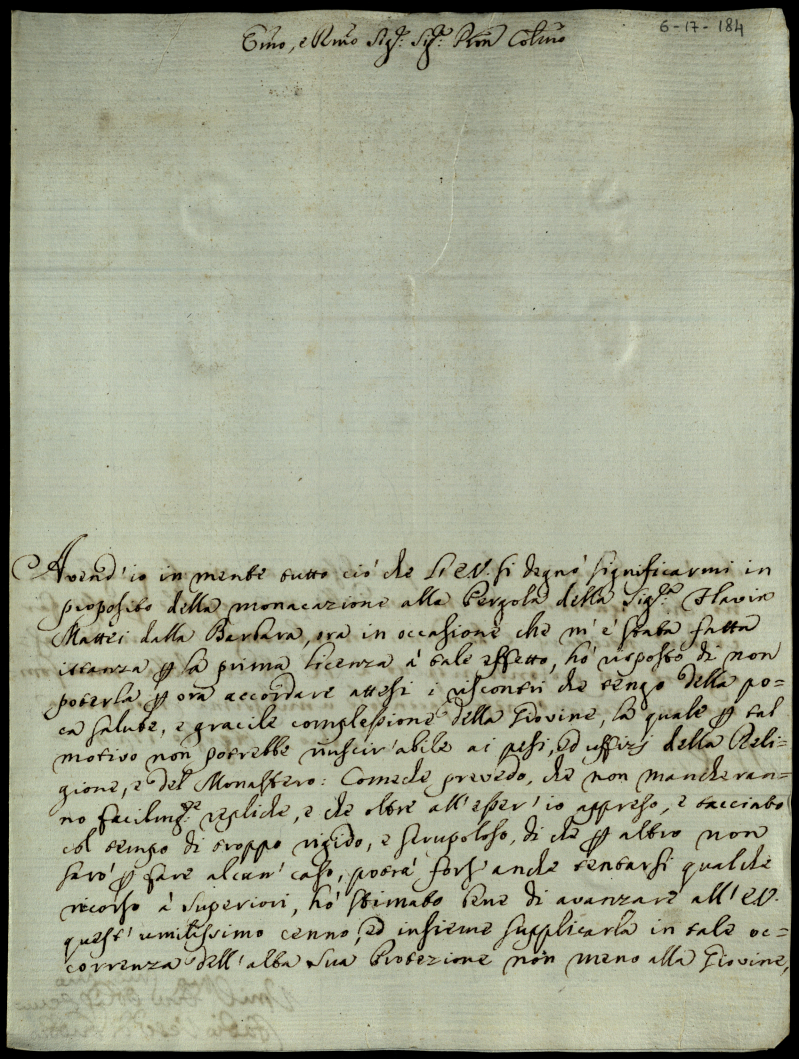 6-17-184
Emo, e Rmo Sig.r Sig.r Pron Colmo
Avend'io in mente tutto ciò che l'E.V. si degnò significarmi in
proposito della monacazione alla Pergola della Sig.ra Flavia
Mattei dalla Barbara, ora in occasione che m'è stata fatta
istanza p la prima licenza à tale effetto, hò risposto di non
poterla p ora accordare attesi i riscontri che tengo della po=
ca salute, e gracile complessione della Giovine, la quale p tal
motivo non potrebbe riuscir'abile ai pesi, ed uffizj della Reli=
gione, e del Monastero: Comeche prevedo, che non mancheran=
no facilmg.te repliche, e che oltre all'esser'io appreso, e tacciato
col tempo di troppo rigido, e scrupoloso, di che p altro non
sarò p fare alcun'caso, potrà fors'anche tentarsi qualche
ricorso à Superiori, hò stimato bene di avanzare all'E.V.
quest'umilissimo cenno, ed insieme supplicarla in tale oc=
correnza dell'alta Sua Protezione non meno alla Giovine,